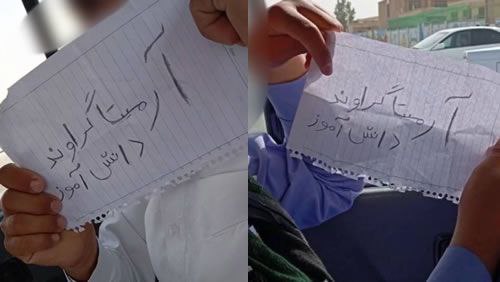 آرمیتا گراوند
دانش آموز
آرمیتا گراوند
دانش آموز